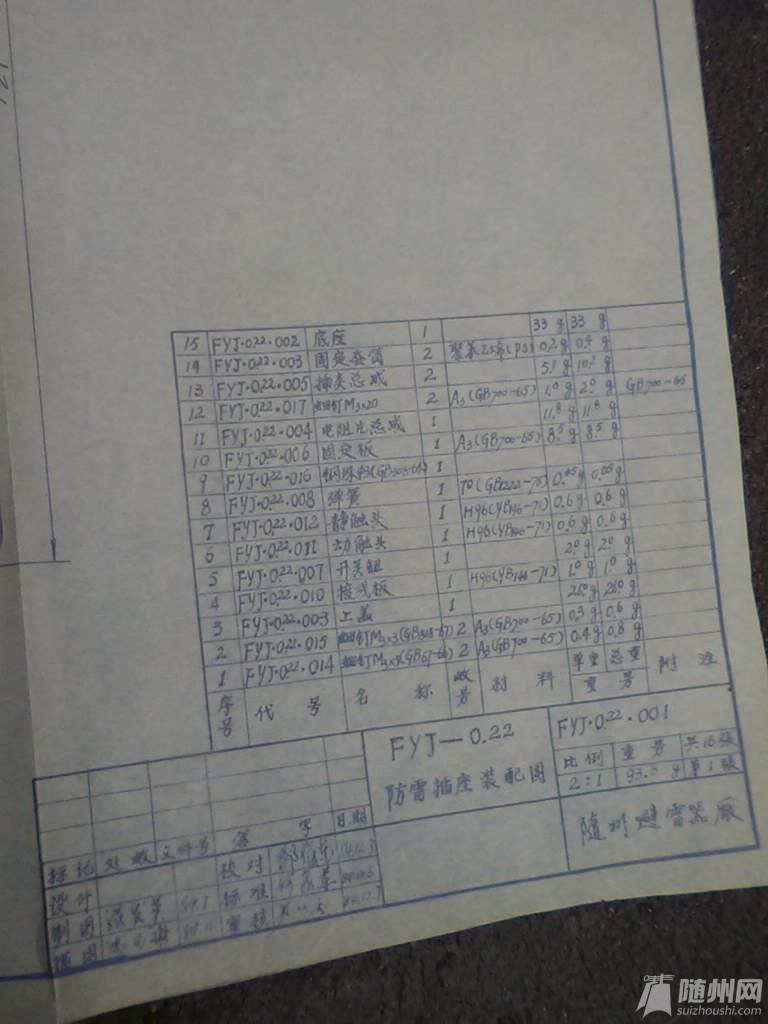 15 FYJ·0.22·002 底座 1 33 g 33 g
14 FYJ·0.22·003 固定套筒 2 聚苯乙烯(PS) 0.2 g 0.4 g
13 FYJ·0.22·005 插夹总成 2 5.1 g 10.2 g
12 FYJ·0.22·017 M3×20 2 A3(GB700-65) 1.0 g 2.0 g GB700-65
11 FYJ·0.22·004 电阻片总成 1 11.8 g 11.8 g
10 FYJ·0.22·006 固定板 1 A3(GB700-65) 8.5 g 8.5 g
9 FYJ·0.22·016 钢珠 1
8 FYJ·0.22·008 弹簧 1 0.05 g 0.05 g
7 FYJ·0.22·012 静触头 1 H96(YB146-71) 0.6 g 0.6 g
6 FYJ·0.22·011 动触头 1 H96(YB146-71) 0.6 g 0.6 g
5 FYJ·0.22·007 开关钮 1 2.0 g 2.0 g
4 FYJ·0.22·010 接线板 1 H96(YB146-71) 1.0 g 1.0 g
3 FYJ·0.22·003 上盖 1 26.0 g 26.0 g
2 FYJ·0.22·015 2 A3(GB700-65) 0.3 g 0.6 g
1 FYJ·0.22·014 2 A3(GB700-65) 0.4 g 0.8 g
序号 代号 名称 数号 材料 单重 总重 重号 附注
FYJ—0.22
防雷插座装配图
FYJ·0.22·001
比例 重号 共16張
2:1 93.8 g 第1張
随州避雷器厰
标记 处数 文件号 签字 日期
设计 校对
制图 标准
描图 审核
随州网
suizhoushi.com